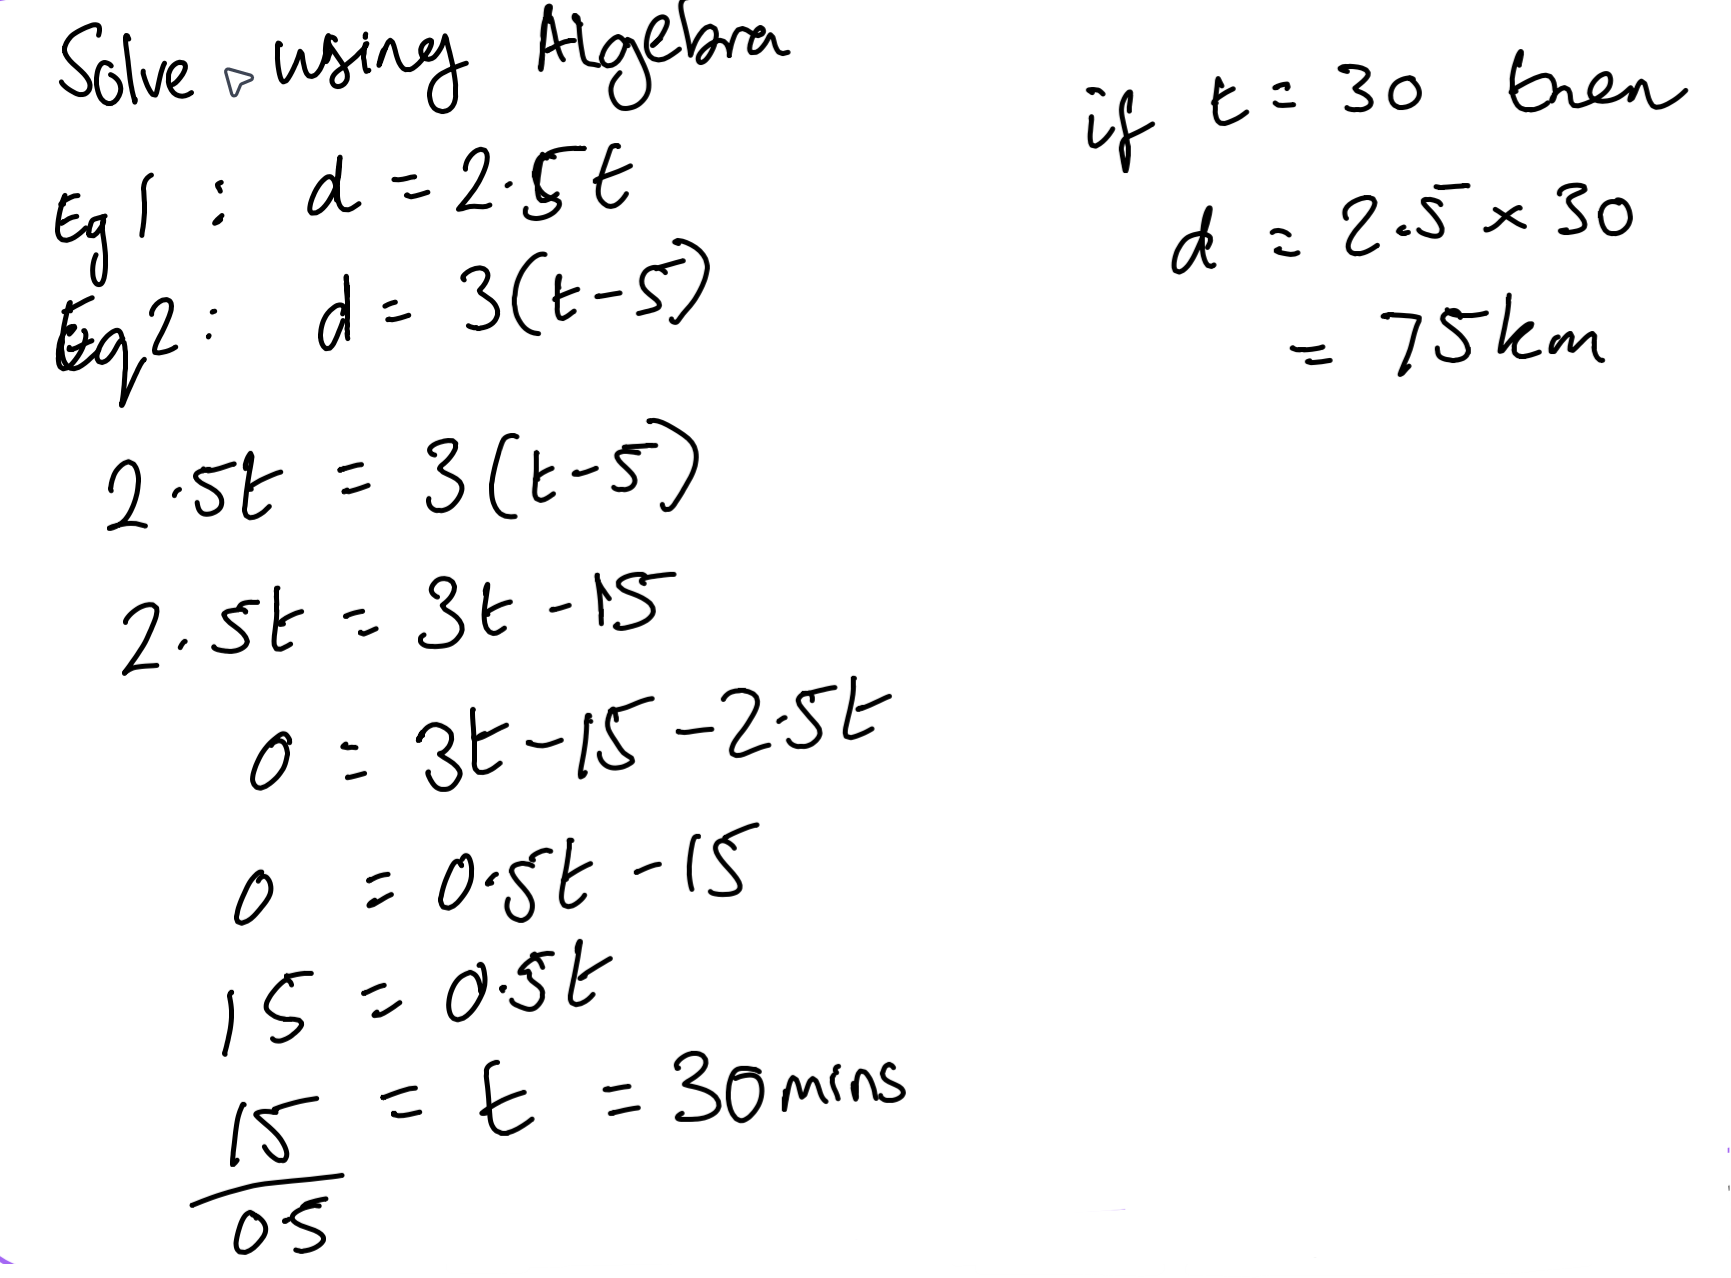 Solve using Algebra
Eq 1 : d = 2.5t
Eq 2 : d = 3(t-5)
2.5t = 3(t-5)
2.5t = 3t - 15
0 = 3t - 15 - 2.5t
0 = 0.5t - 15
15 = 0.5t
15/0.5 = t = 30 mins
if t = 30 then
d = 2.5 × 30
= 75 km